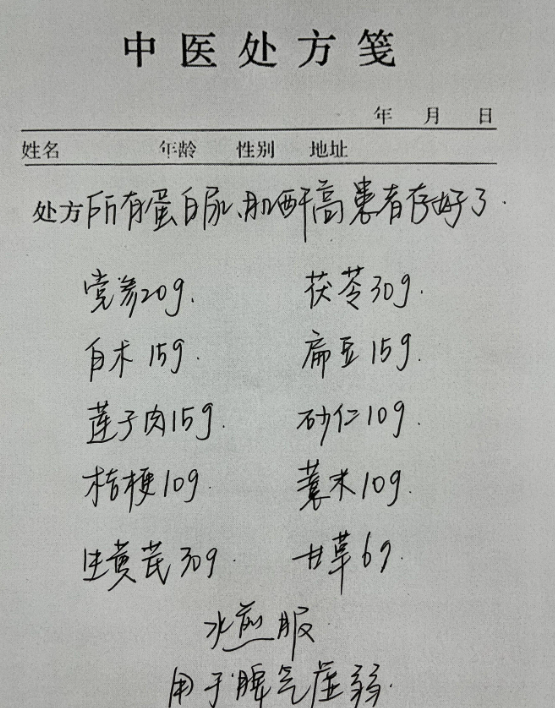 中医处方笺
年 月 日
姓名 年龄 性别 地址
处方 所有蛋白尿、肌酐高患者存好了.
党参20g. 茯苓30g.
白术15g. 扁豆15g.
莲子肉15g. 砂仁10g.
桔梗10g. 薏米10g.
生黄芪30g 甘草6g.
水煎服
用于脾气虚弱.